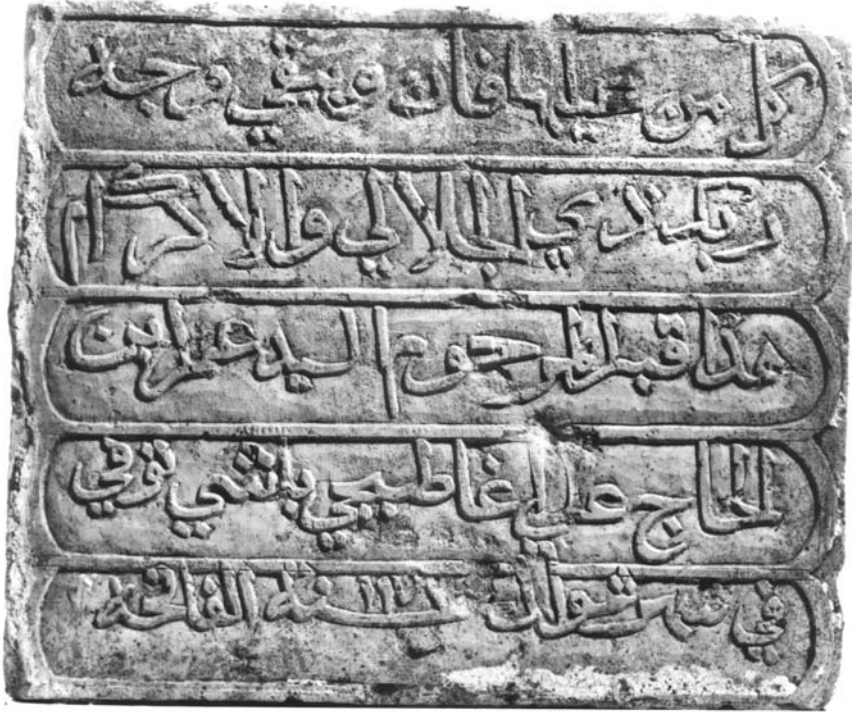 كل من عليها فان ويبقي وجه
ربك ذي الجلالي والاكرام
هذا قبر المرحوم السيد عمر ابن
الحاج علي اغا طبجي باشي توفي
في شهر شوال سنه الفاتحة